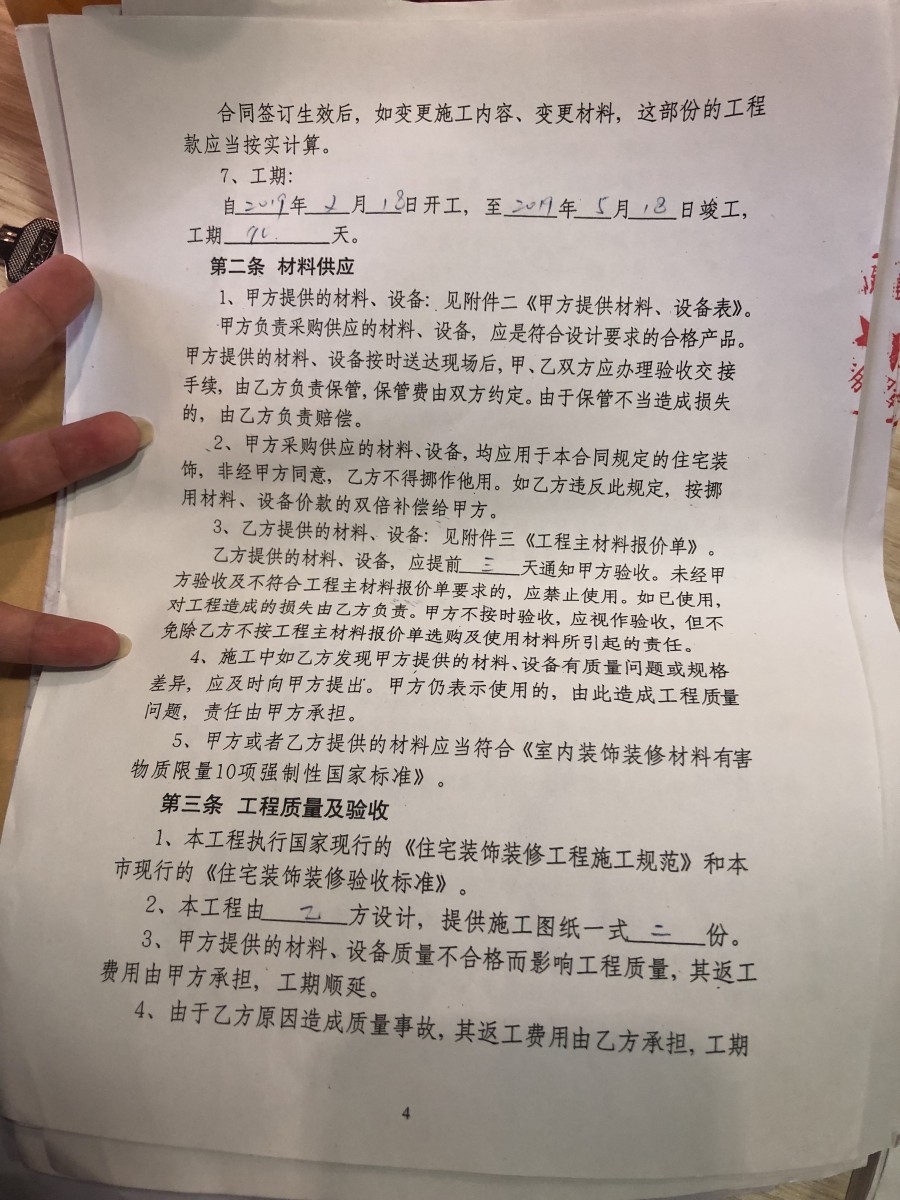 合同签订生效后，如变更施工内容、变更材料，这部份的工程
款应当按实计算。
7、工期：
自2019年2月18日开工，至2019年5月18日竣工，
工期90天。
第二条 材料供应
1、甲方提供的材料、设备：见附件二《甲方提供材料、设备表》。
甲方负责采购供应的材料、设备，应是符合设计要求的合格产品。
甲方提供的材料、设备按时送达现场后，甲、乙双方应办理验收交接
手续，由乙方负责保管，保管费由双方约定。由于保管不当造成损失
的，由乙方负责赔偿。
2、甲方采购供应的材料、设备，均应用于本合同规定的住宅装
饰，非经甲方同意，乙方不得挪作他用。如乙方违反此规定，按挪
用材料、设备价款的双倍补偿给甲方。
3、乙方提供的材料、设备：见附件三《工程主材料报价单》。
乙方提供的材料、设备，应提前三天通知甲方验收。未经甲
方验收及不符合工程主材料报价单要求的，应禁止使用。如已使用，
对工程造成的损失由乙方负责。甲方不按时验收，应视作验收，但不
免除乙方不按工程主材料报价单选购及使用材料所引起的责任。
4、施工中如乙方发现甲方提供的材料、设备有质量问题或规格
差异，应及时向甲方提出。甲方仍表示使用的，由此造成工程质量
问题，责任由甲方承担。
5、甲方或者乙方提供的材料应当符合《室内装饰装修材料有害
物质限量10项强制性国家标准》。
第三条 工程质量及验收
1、本工程执行国家现行的《住宅装饰装修工程施工规范》和本
市现行的《住宅装饰装修验收标准》。
2、本工程由乙方设计，提供施工图纸一式二份。
3、甲方提供的材料、设备质量不合格而影响工程质量，其返工
费用由甲方承担，工期顺延。
4、由于乙方原因造成质量事故，其返工费用由乙方承担，工期
4